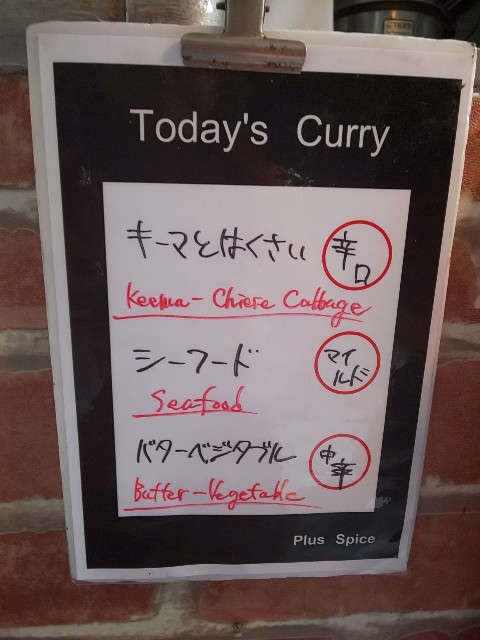 Today's Curry
キーマとはくさい 辛口
Keema-Chiese Cabbage
シーフード マイルド
Seafood
バターベジタブル 中辛
Butter-Vegetable
Plus Spice